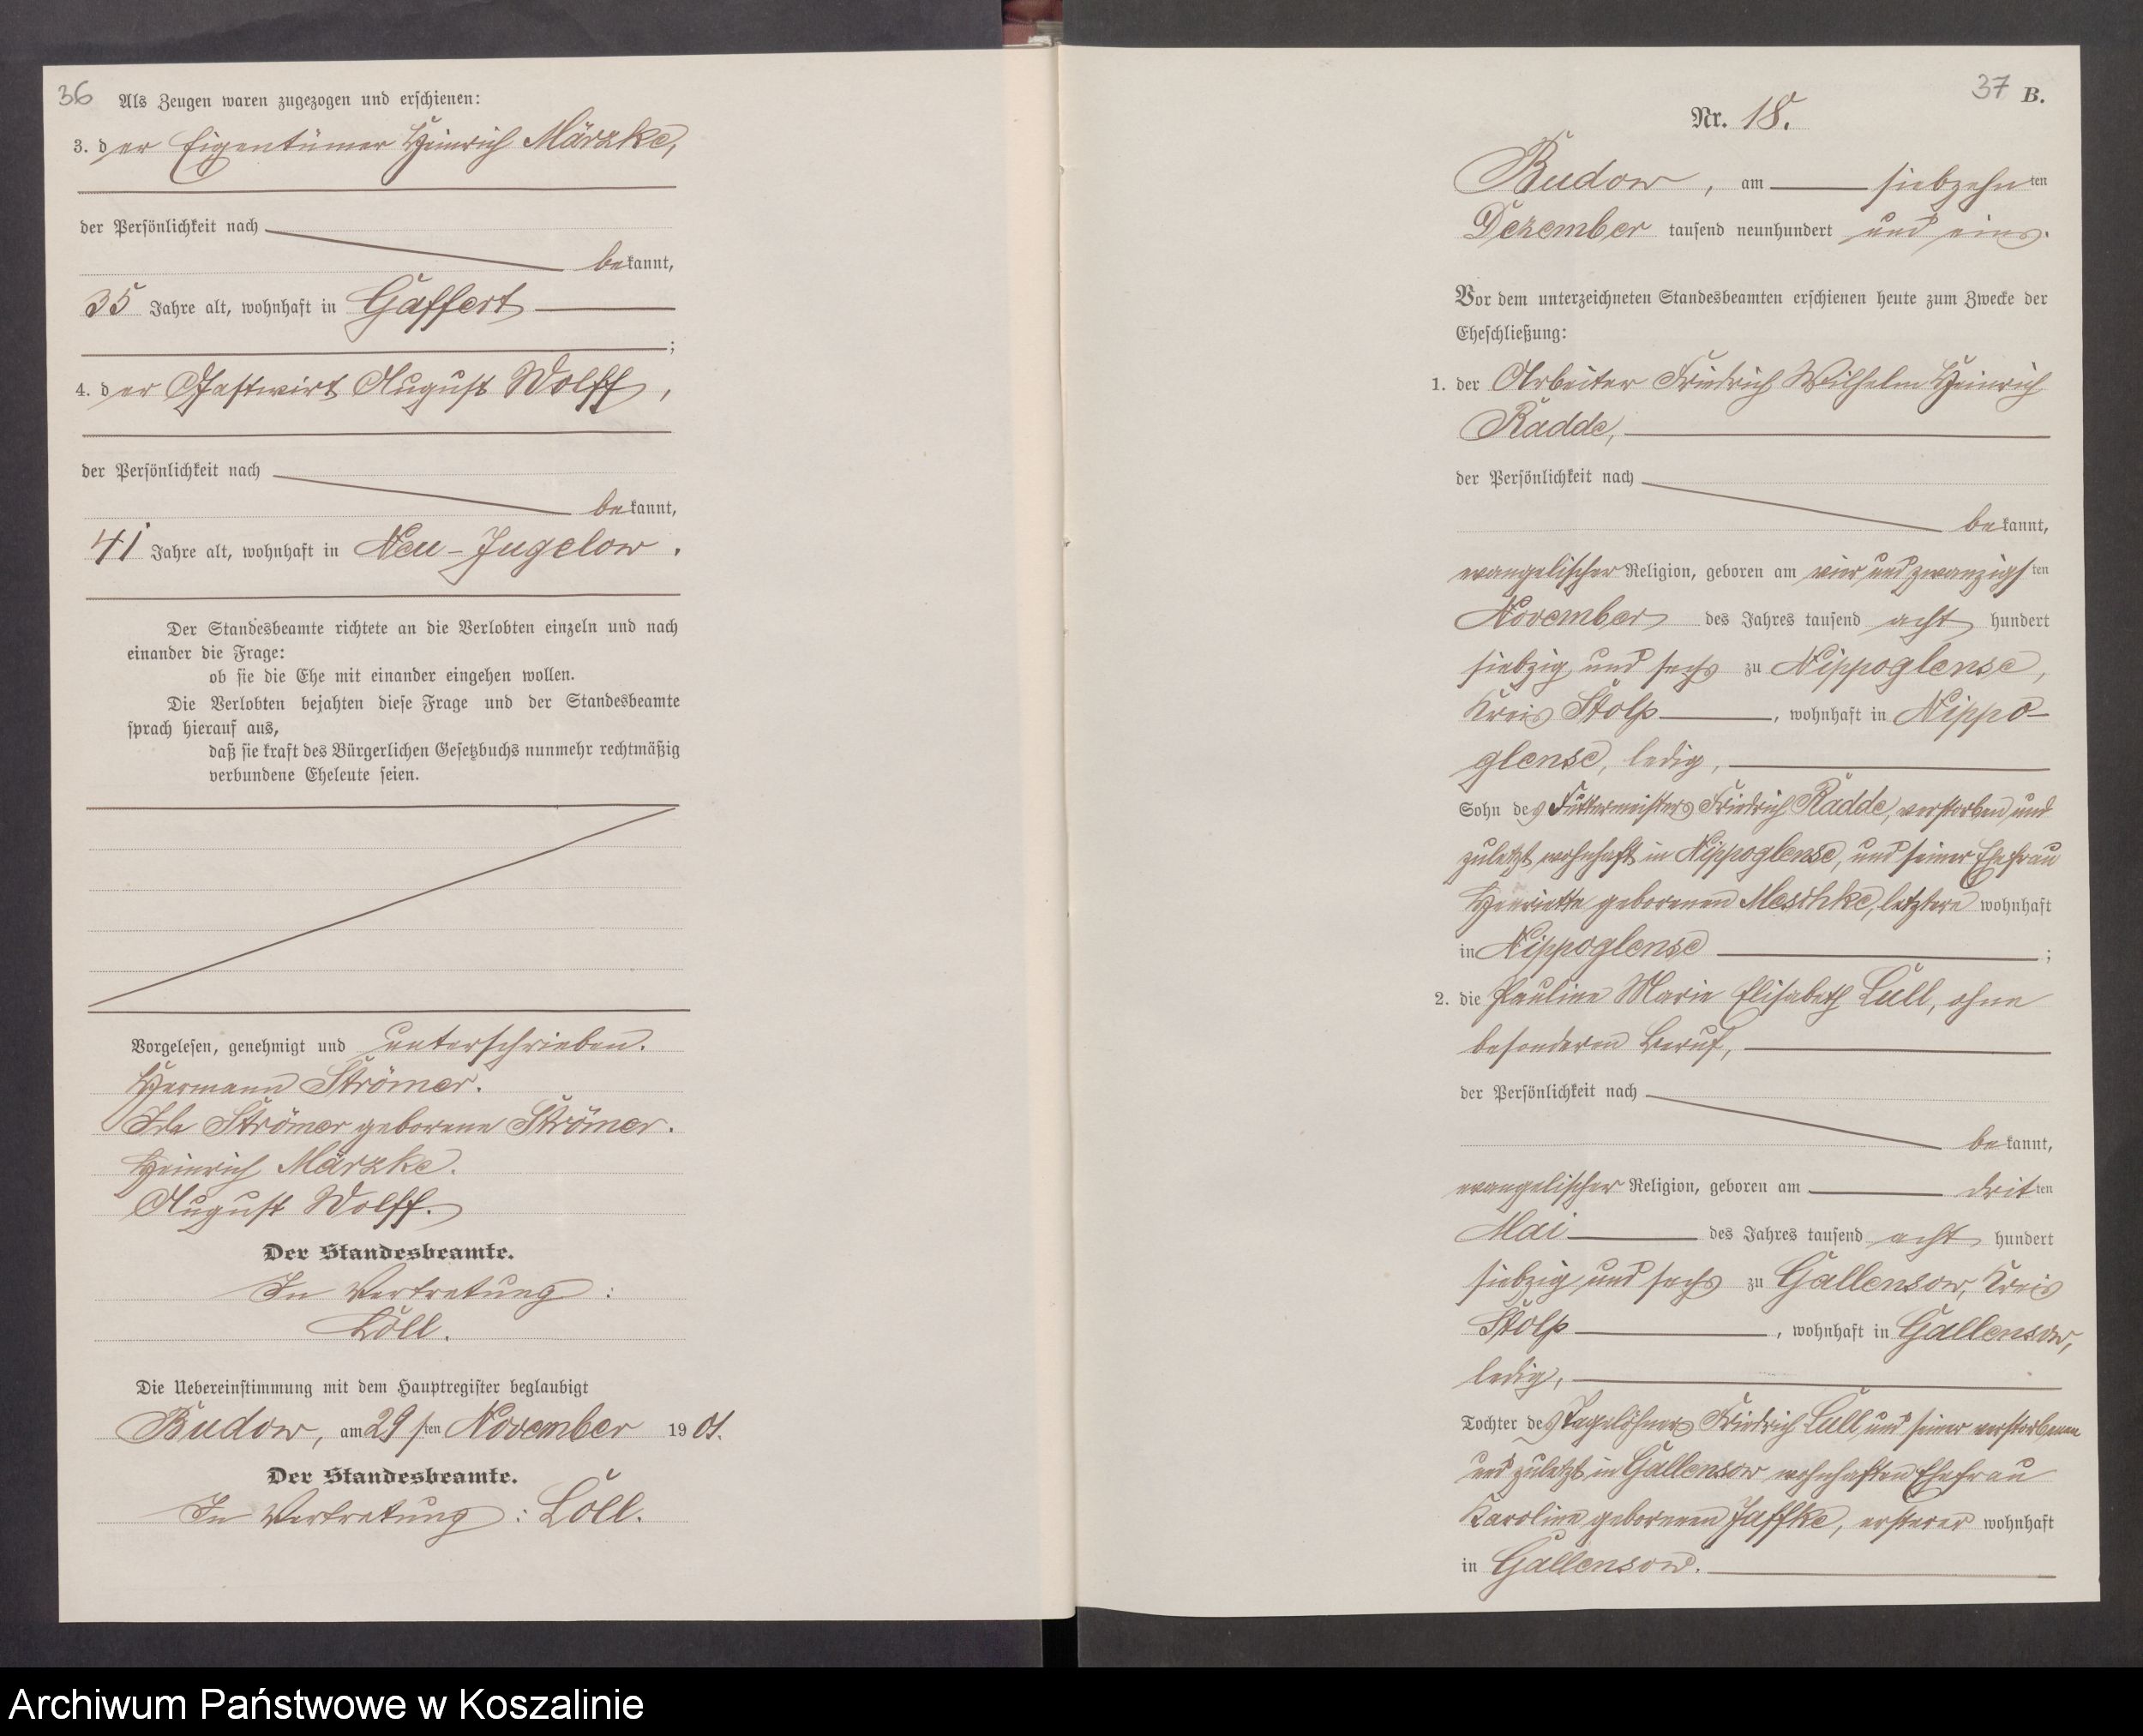 36
Als Zeugen waren zugezogen und erschienen:
3. der Eigentümer Heinrich Märzke,
der Persönlichkeit nach
bekannt,
35 Jahre alt, wohnhaft in Gaffert
;
4. der Gastwirt August Wolff,
der Persönlichkeit nach
bekannt,
41 Jahre alt, wohnhaft in Neu-Jugelow.
Der Standesbeamte richtete an die Verlobten einzeln und nach
einander die Frage:
ob sie die Ehe mit einander eingehen wollen.
Die Verlobten bejahten diese Frage und der Standesbeamte
sprach hierauf aus,
daß sie kraft des Bürgerlichen Gesetzbuchs nunmehr rechtmäßig
verbundene Eheleute seien.
Vorgelesen, genehmigt und unterschrieben.
Hermann Strömer.
Ida Strömer geborene Strömer.
Heinrich Märzke.
August Wolff.
Der Standesbeamte.
In Vertretung:
Löll.
Die Uebereinstimmung mit dem Hauptregister beglaubigt
Budow, am 29sten November 1901.
Der Standesbeamte.
In Vertretung: Löll.
37 B.
Nr. 18.
Budow, am siebzehnten
Dezember tausend neunhundert und eins.
Vor dem unterzeichneten Standesbeamten erschienen heute zum Zwecke der
Eheschließung:
1. der Arbeiter Friedrich Wilhelm Heinrich
Radde,
der Persönlichkeit nach
bekannt,
evangelischer Religion, geboren am vier und zwanzigsten
November des Jahres tausend acht hundert
siebzig und sechs zu Nippoglense,
Kreis Stolp, wohnhaft in Nippo-
glense, ledig,
Sohn des Futtermeisters Friedrich Radde, verstorben und
zuletzt wohnhaft in Nippoglense, und seiner Ehefrau
Henriette geborenen Meschke, letztere wohnhaft
in Nippoglense ;
2. die Pauline Marie Elisabeth Lull, ohne
besonderen Beruf,
der Persönlichkeit nach
bekannt,
evangelischer Religion, geboren am dritten
Mai des Jahres tausend acht hundert
siebzig und sechs zu Gallensow, Kreis
Stolp, wohnhaft in Gallensow,
ledig,
Tochter des Tagelöhners Friedrich Lull und seiner verstorbenen
und zuletzt in Gallensow wohnhaften Ehefrau
Karoline geborenen Jaffke, ersterer wohnhaft
in Gallensow.
Archiwum Państwowe w Koszalinie